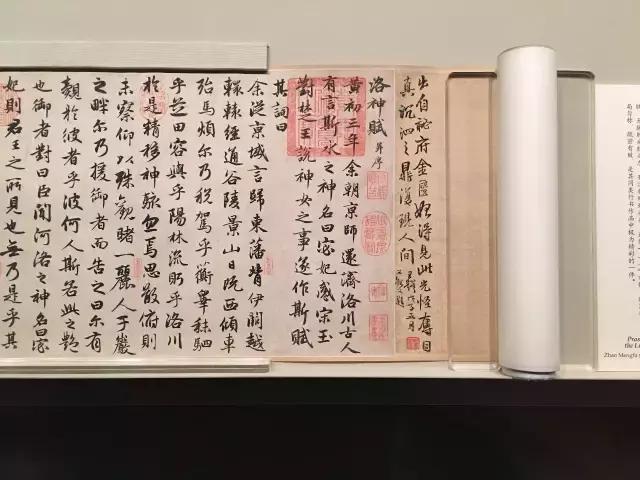 是其同类行书作品中极为精彩的一件。
Zhao Mengfu
出自秘府金匱始得見此光怪奪目
真沉泗之鼎復現人間
洛神賦 并序
黃初三年余朝京師還濟洛川古人
有言斯水之神名曰宓妃感宋玉
對楚之王說神女之事遂作斯賦
其詞曰
余從京域言歸東藩背伊闕越
轘轅經通谷陵景山日既西傾車
殆馬煩尔乃稅駕乎蘅皋秣駟
乎芝田容與乎陽林流眄乎洛川
於是精移神駭忽焉思散俯則
未察仰以殊觀睹一麗人于巖
之畔尔乃援御者而告之曰尔有
覿於彼者乎彼何人斯若此之艷
也御者對曰臣聞河洛之神名曰宓
妃則君王之所見也無乃是乎其